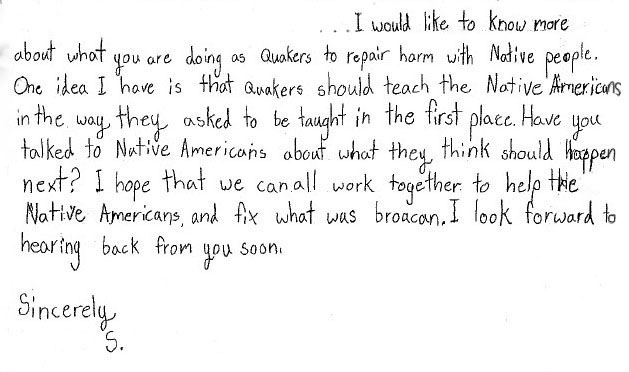 ...I would like to know more
about what you are doing as Quakers to repair harm with Native people.
One idea I have is that Quakers should teach the Native Americans
in the way they asked to be taught in the first place. Have you
talked to Native Americans about what they think should happen
next? I hope that we can all work together to help the
Native Americans, and fix what was broacan. I look forward to
hearing back from you soon.
Sincerely
S.